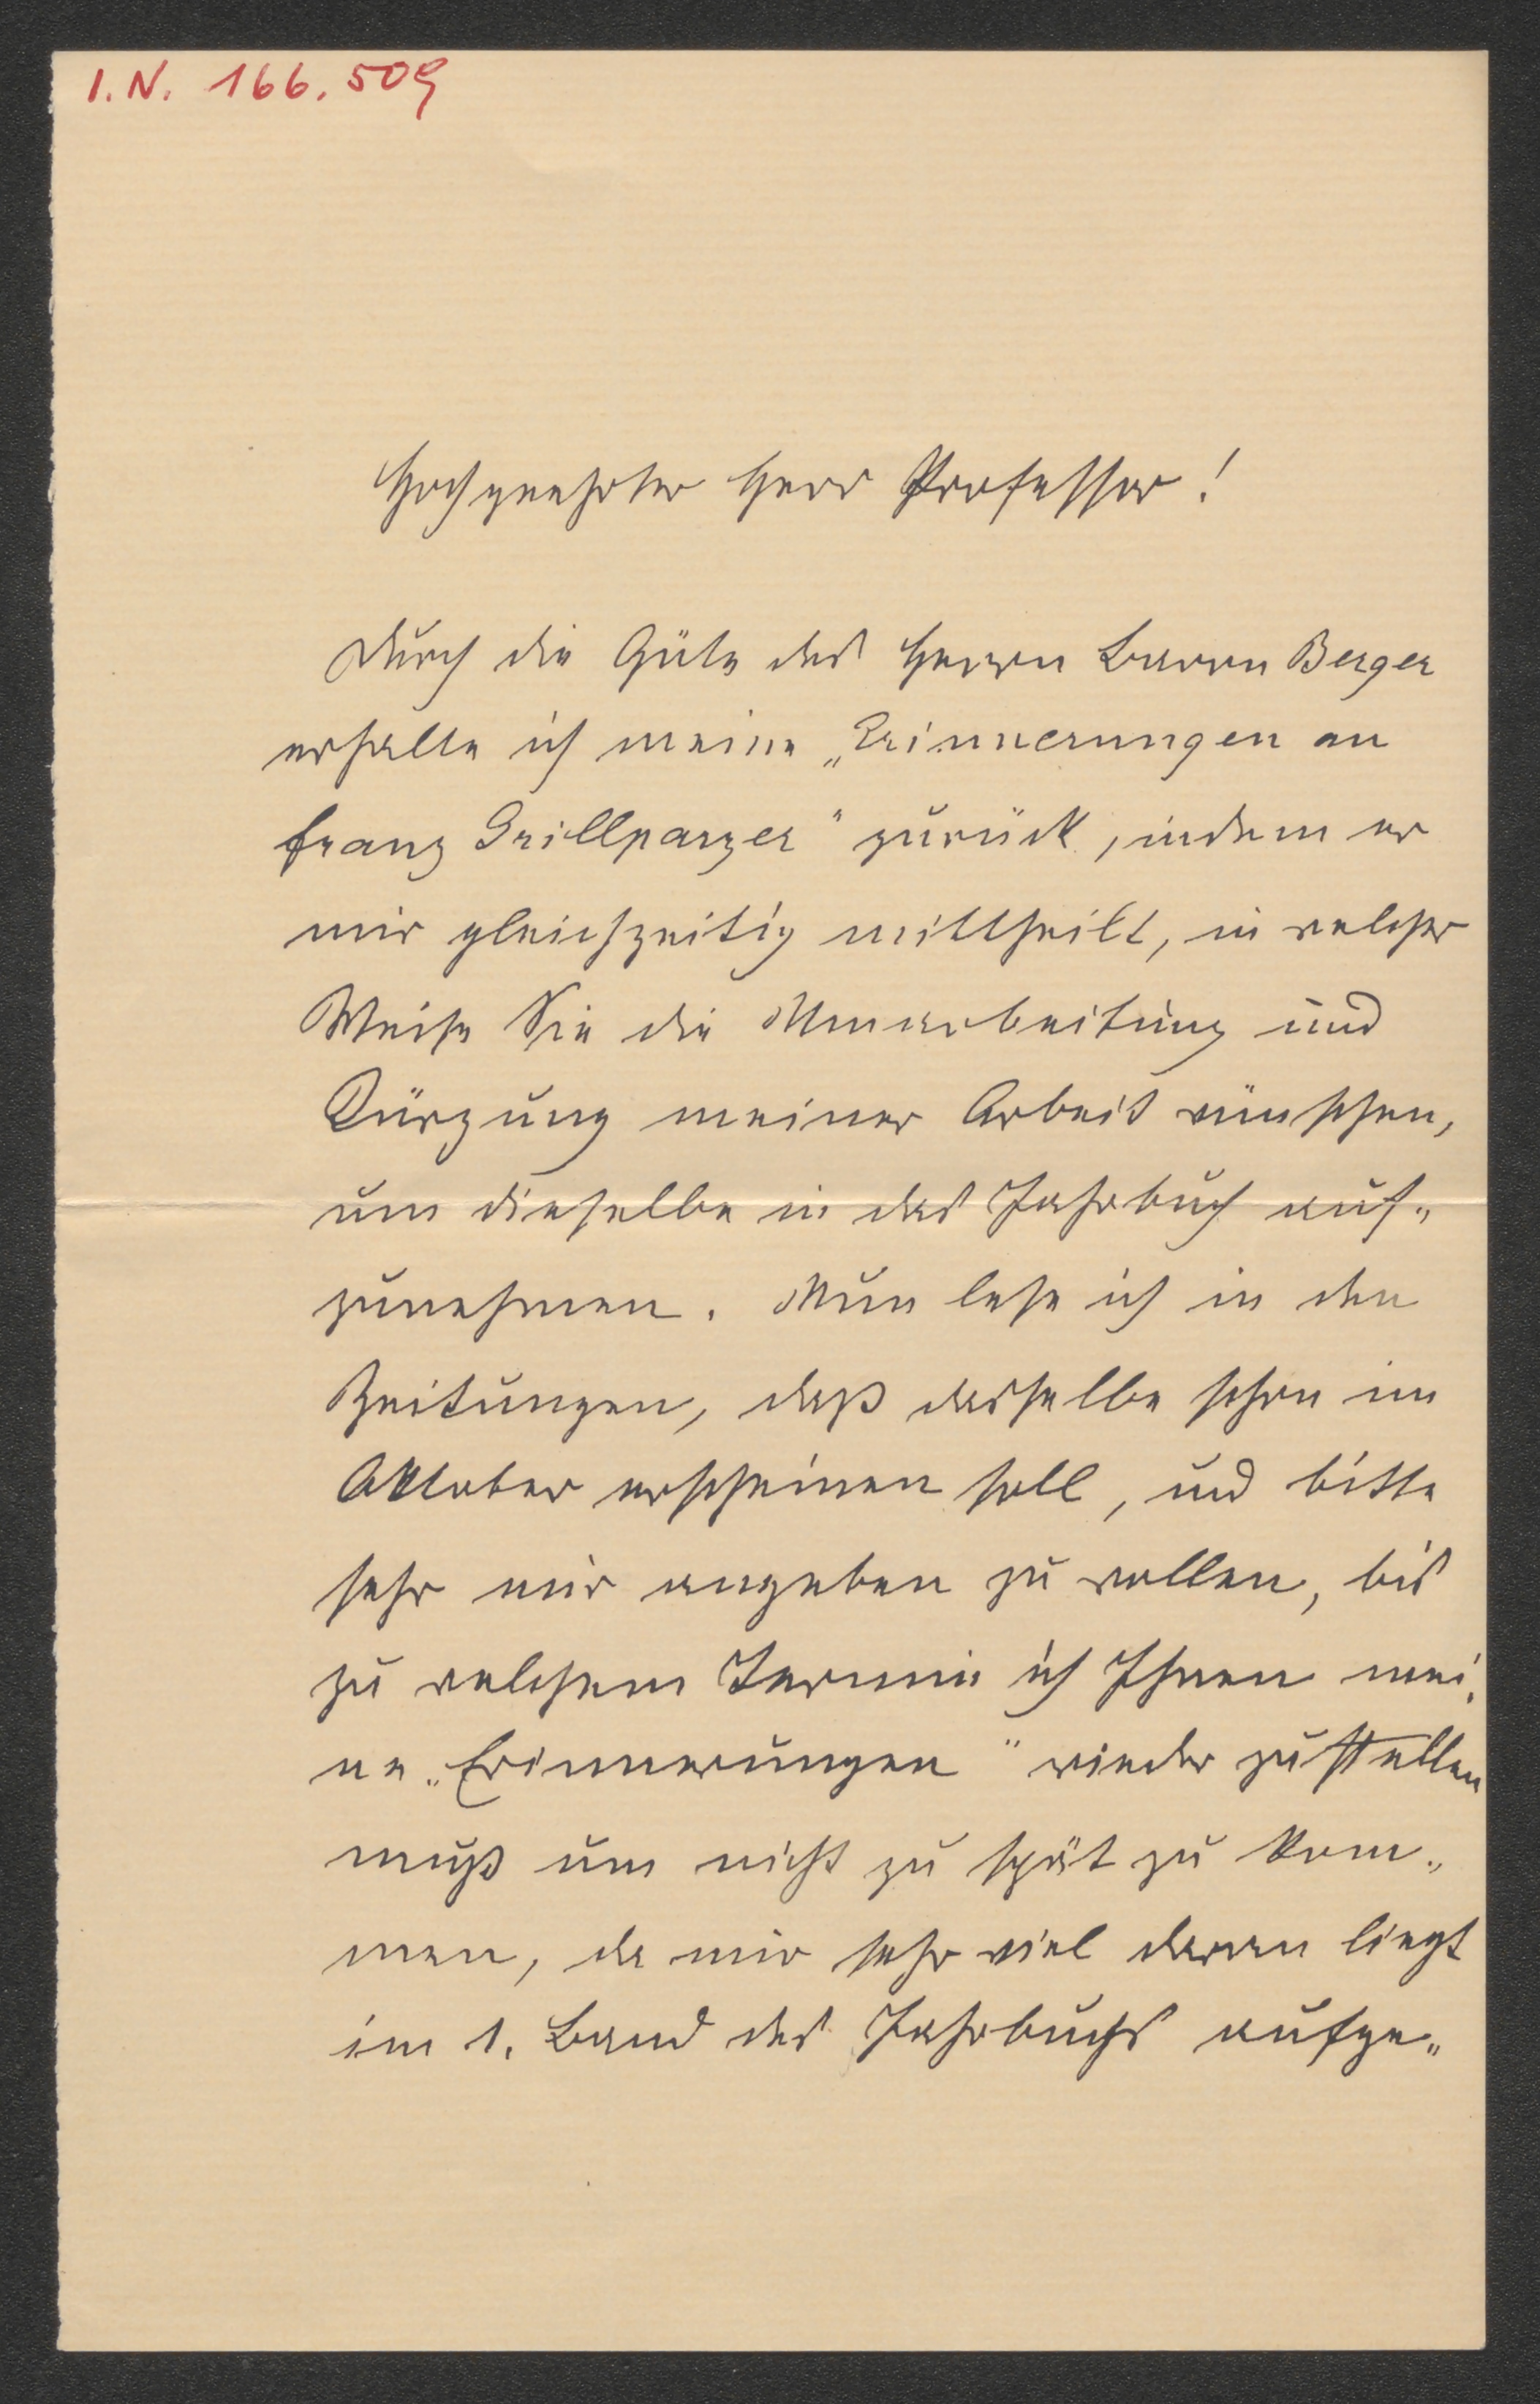 I. N. 166.509
Hochgeehrter Herr Professor!
Durch die Güte des Herrn Baron Berger
erhalte ich meine „Erinnerungen an
Franz Grillparzer" zurück, indem er
mir gleichzeitig mittheilt, in welcher
Weise Sie die Umarbeitung und
Kürzung meiner Arbeit wünschen,
um dieselbe in das Jahrbuch auf„
zunehmen. Nun lese ich in den
Zeitungen, daß dasselbe schon im
Oktober erscheinen soll, und bitte
sehr mir angeben zu wollen, bis
zu welchem Termin ich Ihnen mei„
ne „Erinnerungen" wieder zustellen
muß um nicht zu spät zu kom„
men, da mir sehr viel daran liegt
im 1. Band des Jahrbuchs aufge„